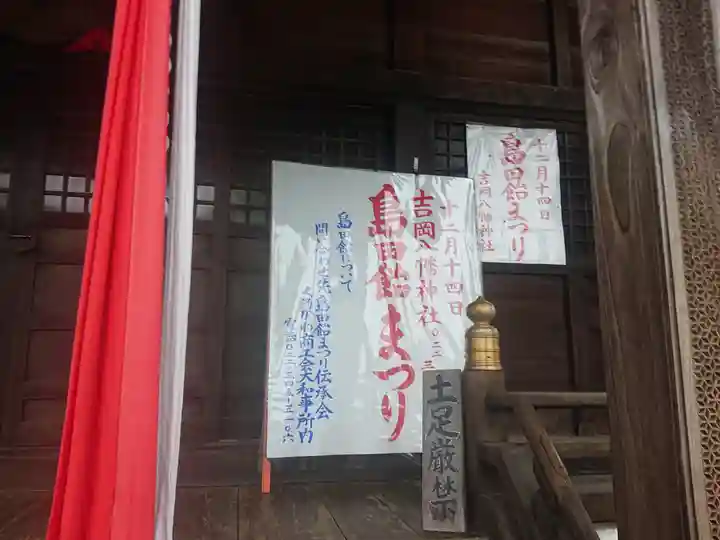 十二月十四日
吉岡八幡神社
島田飴まつり
島田飴について
問い合わせ先 島田飴まつり伝承会
くろかわ商工会大和事務所内
十二月十四日
島田飴まつり
吉岡八幡神社
土足厳禁